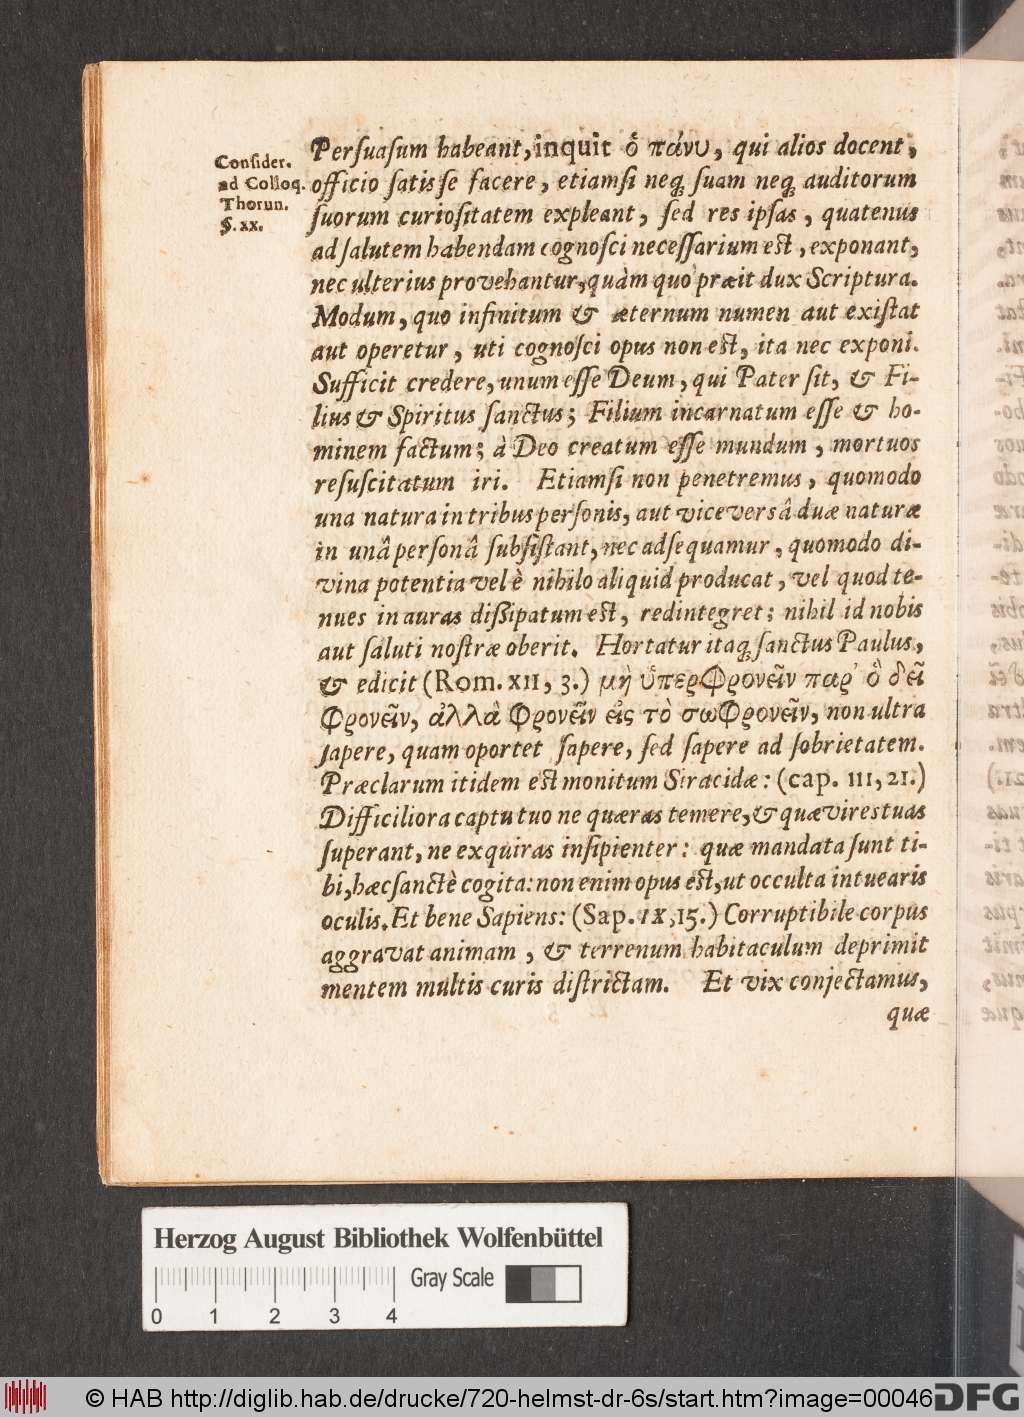 Consider.
ad Colloq.
Thorun.
§. xx.
Perſuaſum habeant, inquit ὁ πάνυ, qui alios docent,
officio ſatis ſe facere, etiamſi neq; ſuam neq; auditorum
ſuorum curioſitatem expleant, ſed res ipſas, quatenus
ad ſalutem habendam cognoſci neceſſarium est, exponant,
nec ulterius provehantur, quàm quò præit dux Scriptura.
Modum, quo infinitum & æternum numen aut exiſtat
aut operetur, uti cognoſci opus non est, ita nec exponi.
Sufficit credere, unum eſſe Deum, qui Pater ſit, & Fi-
lius & Spiritus ſanctus; Filium incarnatum eſſe & ho-
minem factum; à Deo creatum eſſe mundum, mortuos
reſuſcitatum iri. Etiamſi non penetremus, quomodo
una natura in tribus perſonis, aut vice versâ duæ naturæ
in unâ perſonâ ſubſiſtant, nec adſequamur, quomodo di-
vina potentia vel è nihilo aliquid producat, vel quod te-
nues in auras diſſipatum est, redintegret; nihil id nobis
aut ſaluti noſtræ oberit. Hortatur itaq; ſanctus Paulus,
& edicit (Rom. XII, 3.) μὴ ὑπερφρονεῖν παρ' ὃ δεῖ
φρονεῖν, ἀλλὰ φρονεῖν εἰς τὸ σωφρονεῖν, non ultra
ſapere, quam oportet ſapere, ſed ſapere ad ſobrietatem.
Præclarum itidem est monitum Siracidæ: (cap. III, 21.)
Difficiliora captu tuo ne quæras temere, & quæ vires tuas
ſuperant, ne exquiras inſipienter: quæ mandata ſunt ti-
bi, hæc ſanctè cogita: non enim opus est, ut occulta intuearis
oculis. Et bene Sapiens: (Sap. IX, 15.) Corruptibile corpus
aggravat animam, & terrenum habitaculum deprimit
mentem multis curis diſtrictam. Et vix conjectamus,
quæ
Herzog August Bibliothek Wolfenbüttel
Gray Scale
0 1 2 3 4
© HAB http://diglib.hab.de/drucke/720-helmst-dr-6s/start.htm?image=00046
DFG